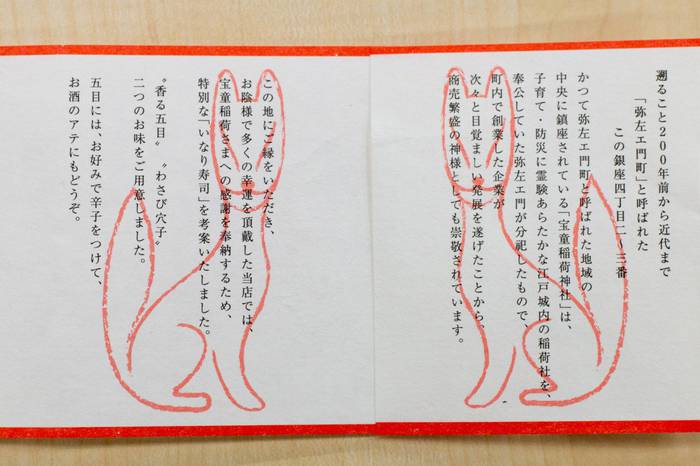 遡ること200年前から近代まで
「弥左エ門町」と呼ばれた
この銀座四丁目二〜三番
かつて弥左エ門町と呼ばれた地域の
中央に鎮座されている「宝童稲荷神社」は、
子育て・防災に霊験あらたかな江戸城内の稲荷社を、
奉公していた弥左エ門が分祀したもので、
町内で創業した企業が
次々と目覚ましい発展を遂げたことから、
商売繁盛の神様としても崇敬されています。
この地にご縁をいただき、
お陰様で多くの幸運を頂戴した当店では、
宝童稲荷さまへの感謝を奉納するため、
特別な「いなり寿司」を考案いたしました。
“香る五目” “わさび穴子”
二つのお味をご用意しました。
五目には、お好みで辛子をつけて、
お酒のアテにもどうぞ。